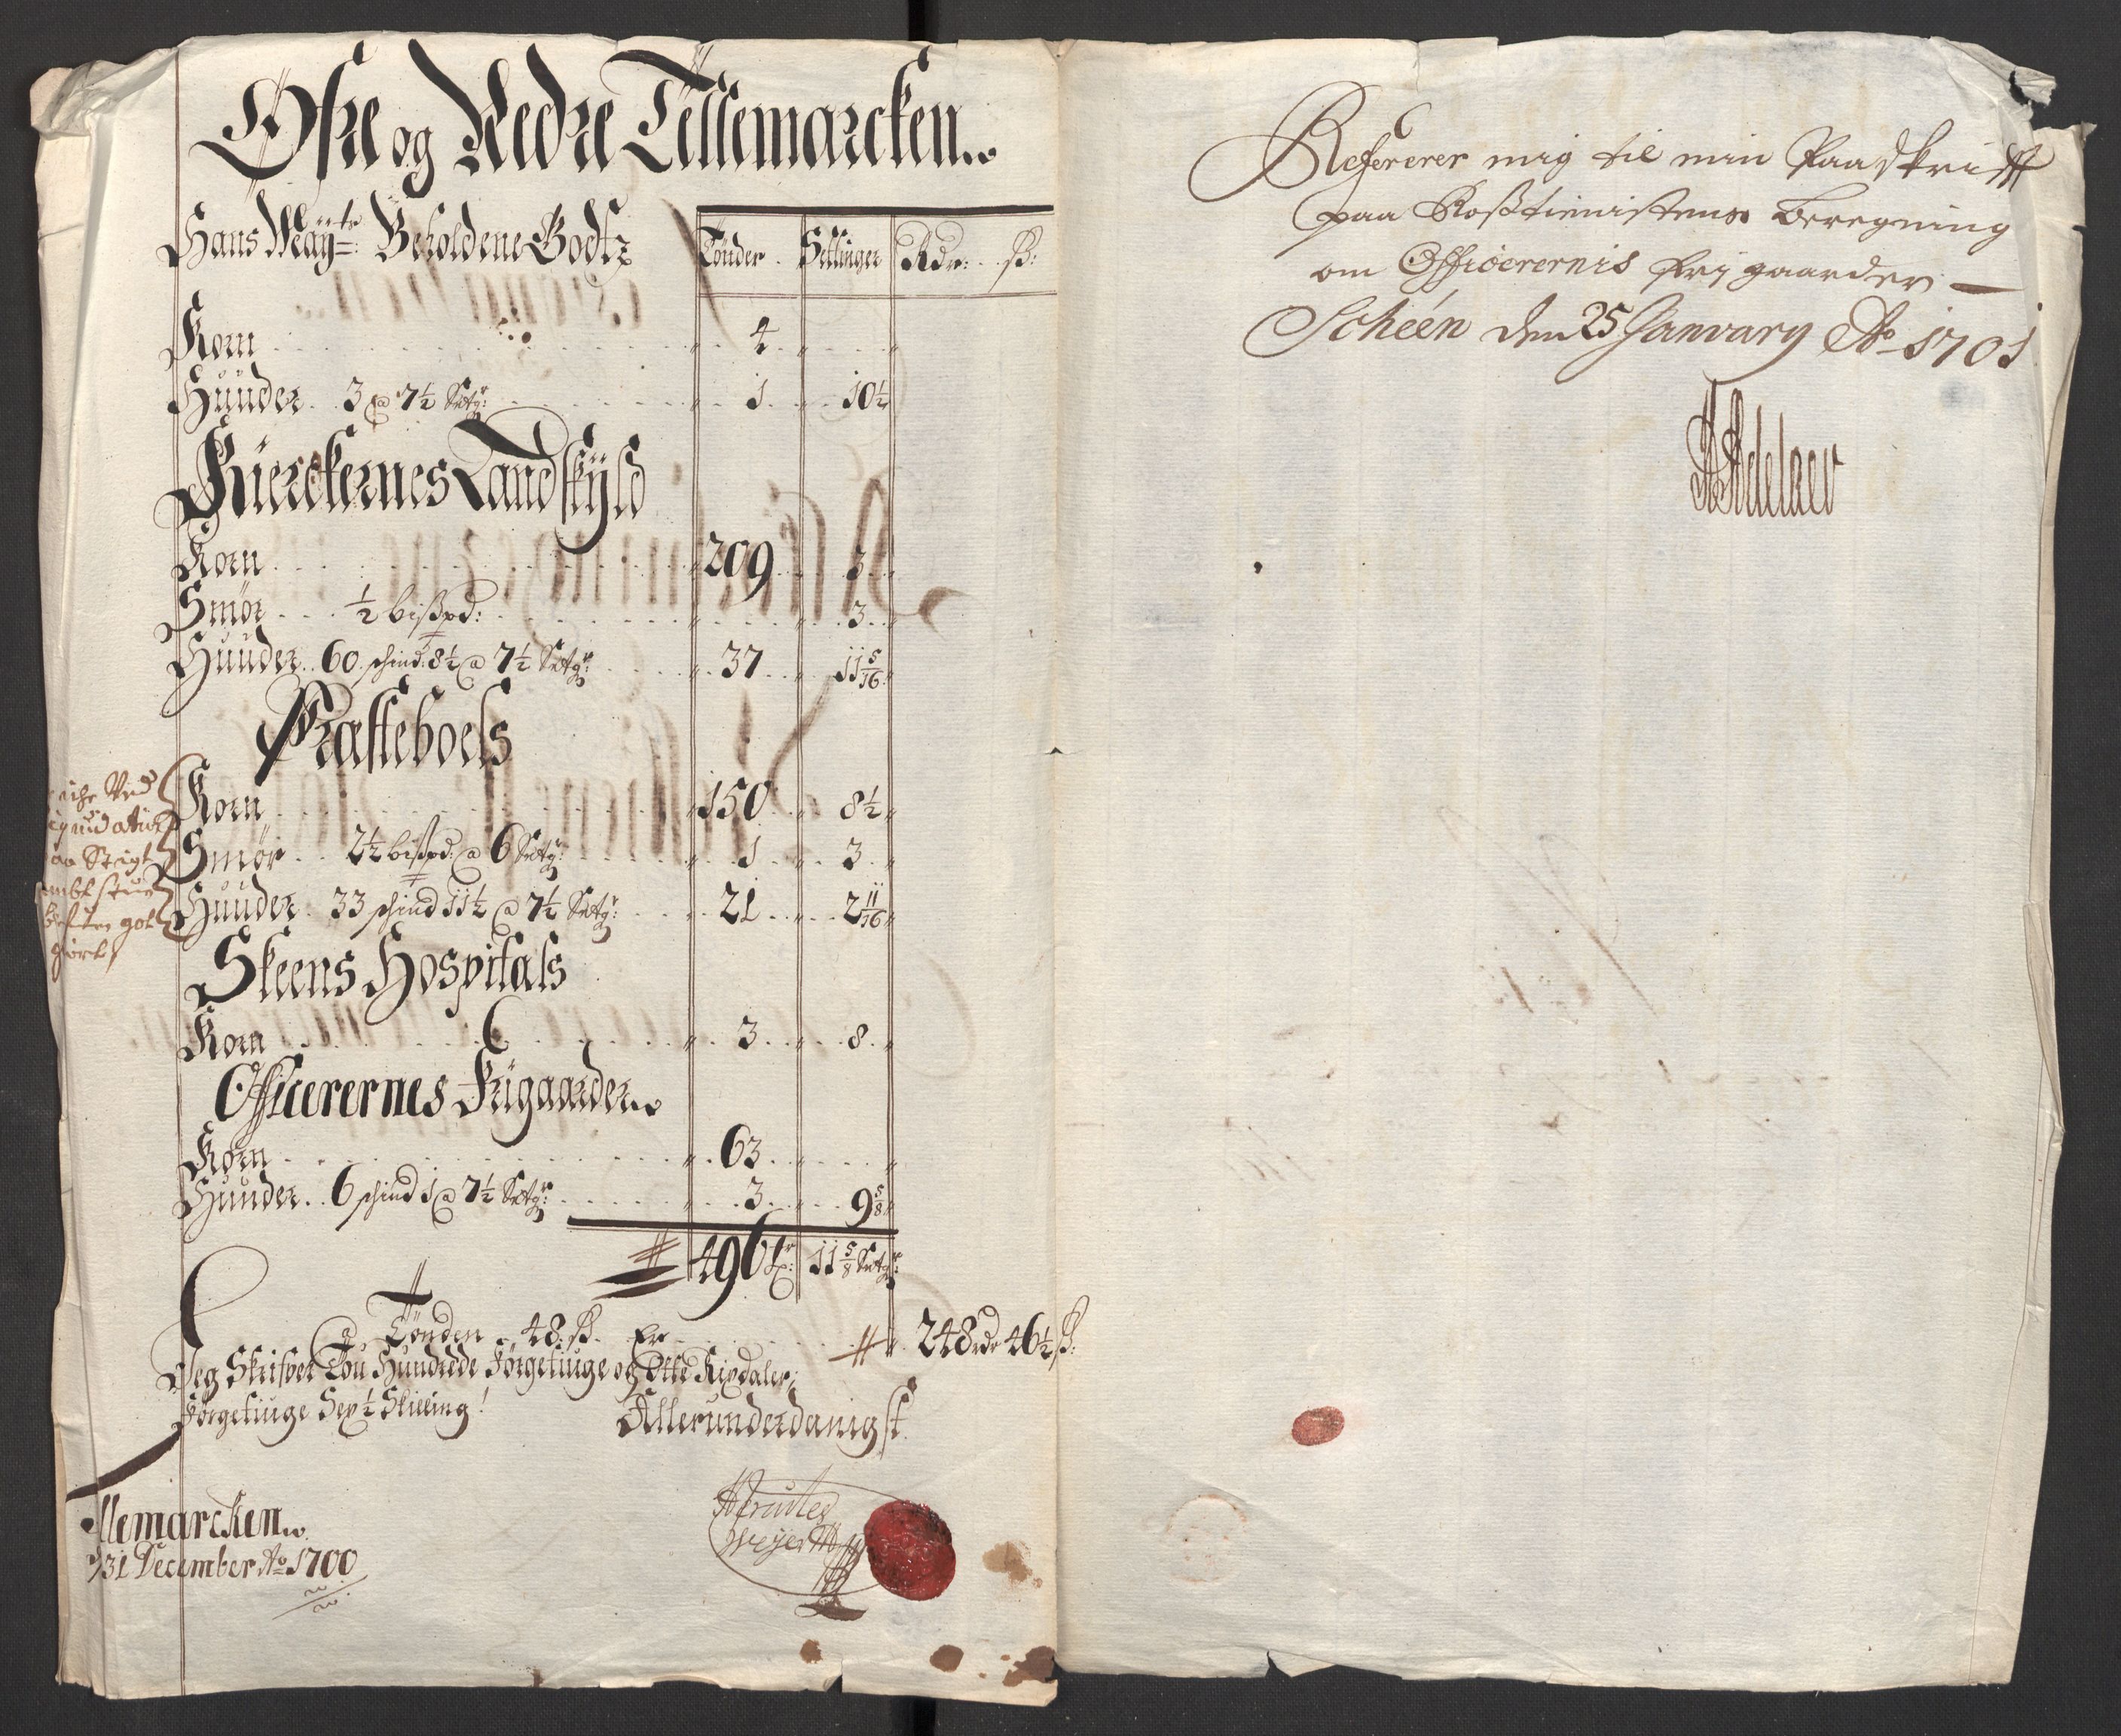 Øfre og Nedre Tellemarcken
Hans Maÿts: Beholdene Godtz
Tønder Settinger Rdr: ß:
Korn 4
Huuder 3 a 7½ Setgr: 1 10½
Kierckernes Landskÿld
Korn 209 3
Smør ½ bißpd: 3
Huuder 60 schind: 8½ a 7½ Setgr: 37 11 5/16
Præsteboels
Korn 150 8½
Smør 2½ bißpd: a 6 Setgr: 1 3
Huuder 33 schind 11½ a 7½ Setgr: 21 2 11/16
Skeens Hospitals
Korn 3 8
Officerernes Frigaarder
Korn 63
Huuder 6 schind 1 a 7½ Setgr: 3 9 5/8
496 tr: 11 5/8 Setgr:
Tønden 48 ß. Er 248 rdr 46½ ß:
Seg Skrifver Tou Hundrede Førgetiuge og Otte Rixdaler,
Førgetiuge Sex ½ Skilling!
Allerunderdanigst
llemarcken
31 December Ao 1700
Refererer mig til min Paaskrifft
paa Roßtienistens beregning
om Officerernis frj gaarder
Scheén den 25 January Ao 1701
Adelaer